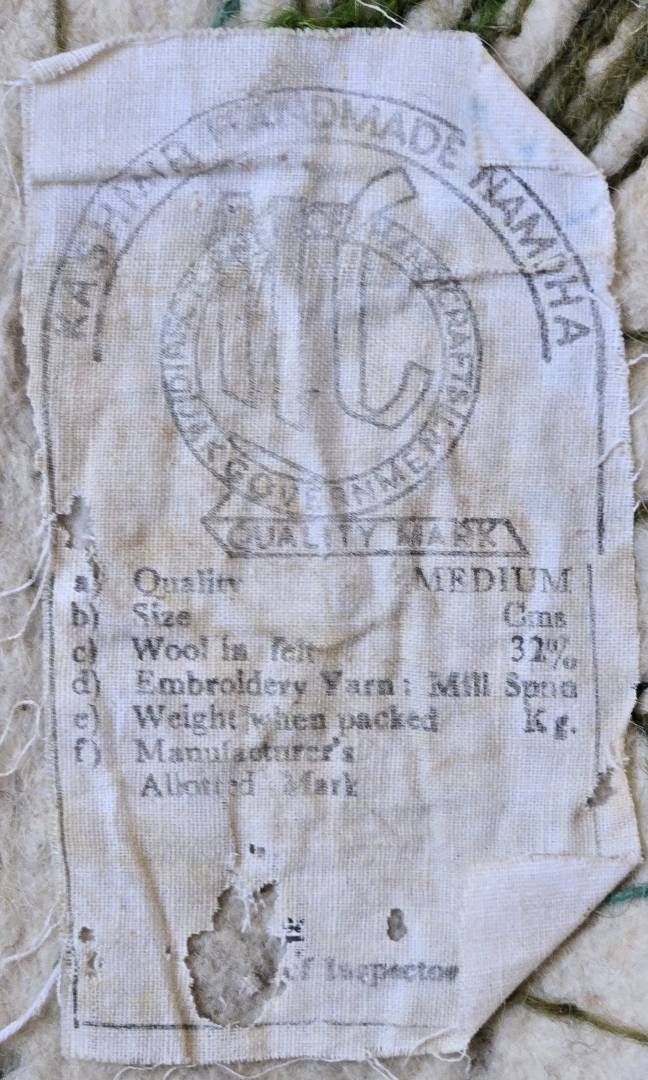 KASHMIR HANDMADE NAMDHA
HANDICRAFTS
GOVERNMENT
QUALITY MARK
a) Quality MEDIUM
b) Size Cms
c) Wool in felt 32%
d) Embroidery Yarn: Mill Spun
e) Weight when packed Kg.
f) Manufacturer's
Allotted Mark
of Inspector